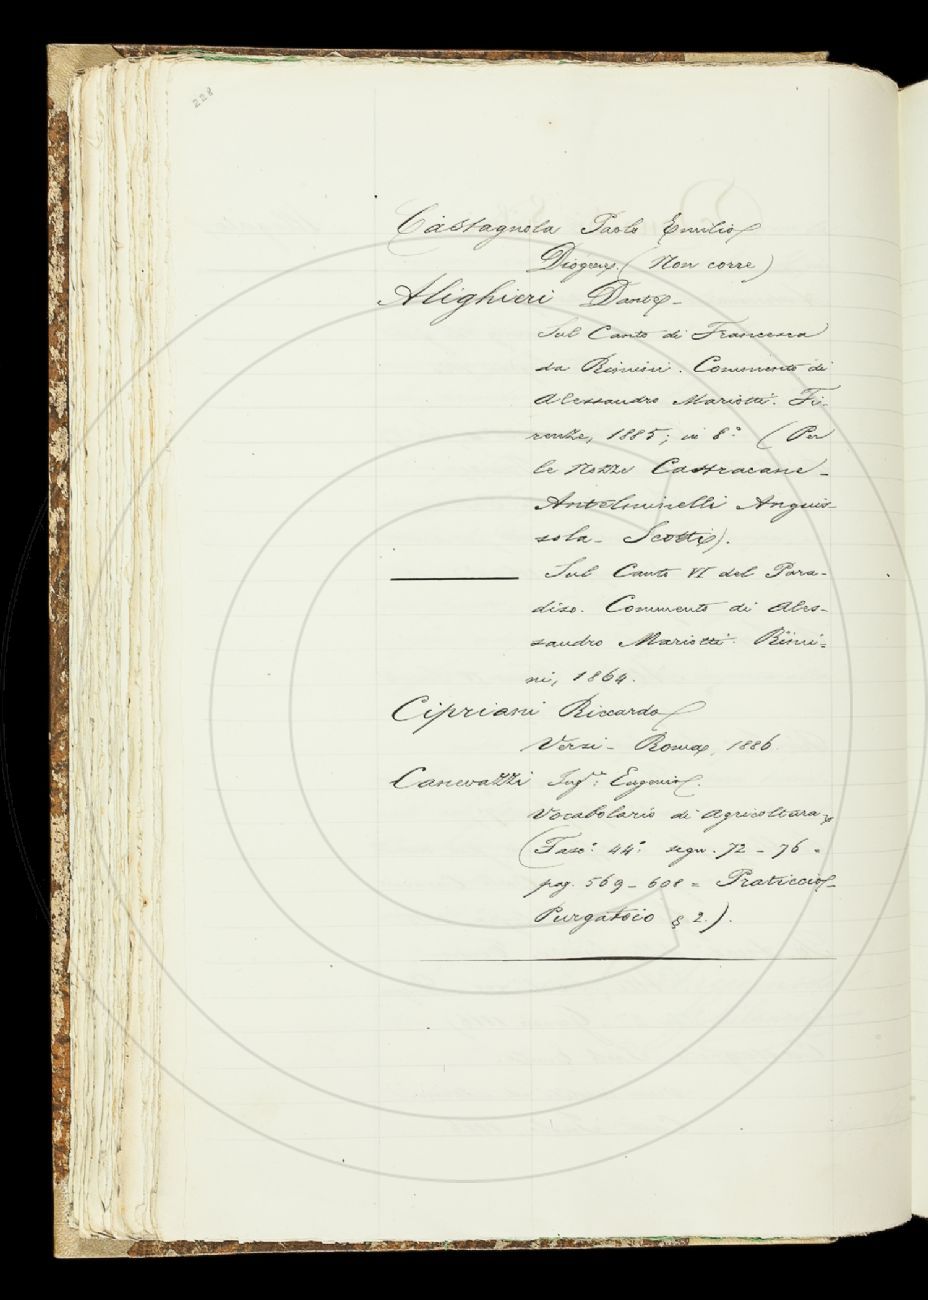 228
Castagnola Paolo Emilio
Diogene. (Non corre)
Alighieri Dante -
Sul Canto di Francesca
da Rimini. Commento di
Alessandro Mariotti. Fi-
renze, 1885; in 8.° (Per
le nozze Castracane -
Antelminelli Anguis-
sola - Scotti).
Sul Canto VI del Para-
diso. Commento di Ales-
sandro Mariotti. Rimi-
ni, 1864.
Cipriani Riccardo
Versi - Roma, 1886.
Canevazzi Ing.re Eugenio.
Vocabolario di Agricoltura,
(Fasc.° 44.° segn. 72 - 76 =
pag. 569 - 608 = Praticcio -
Purgatoio § 2.).